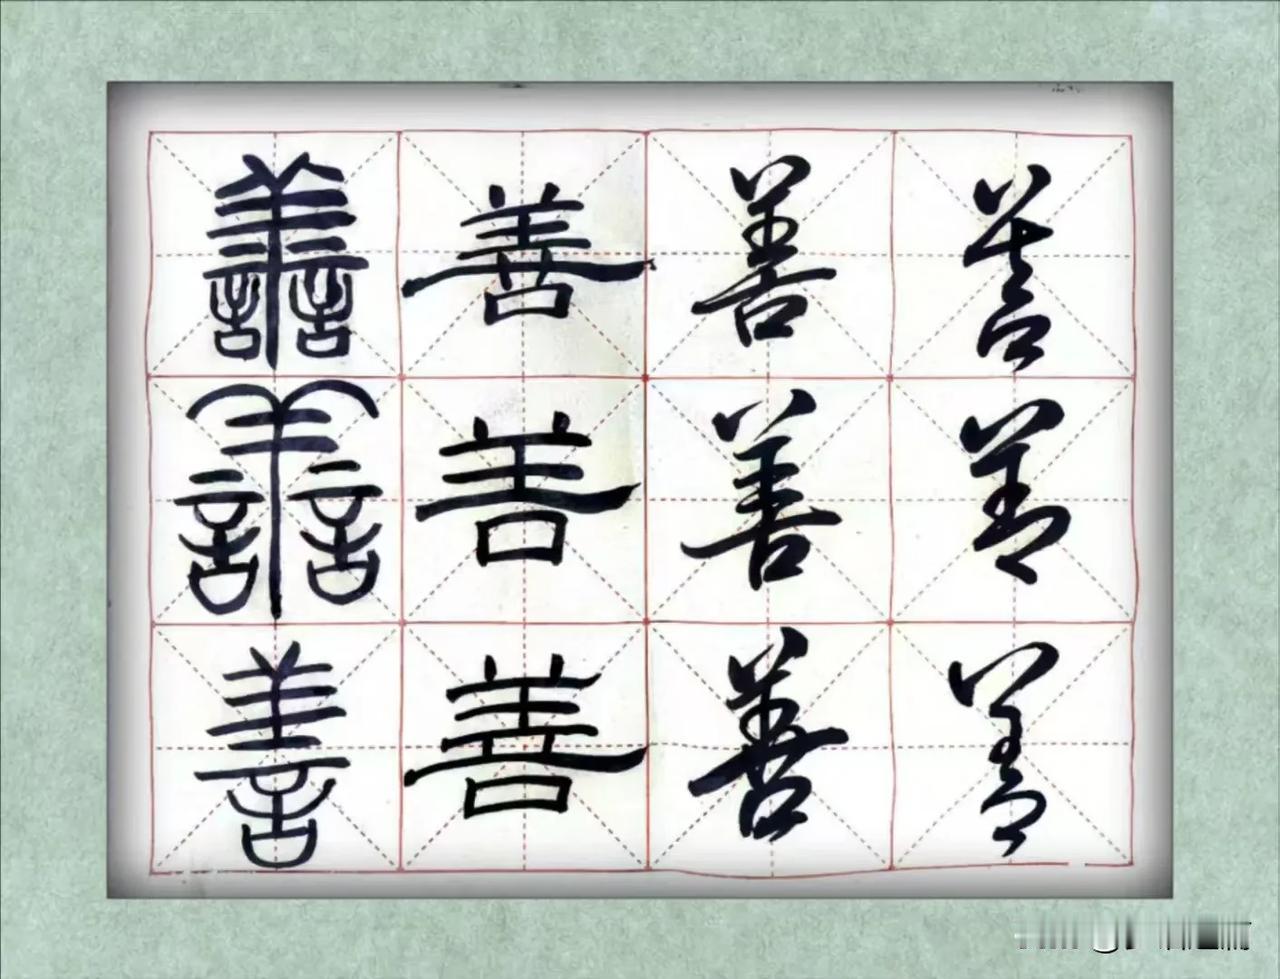 善 善 善 善
善 善 善 善
善 善 善 善